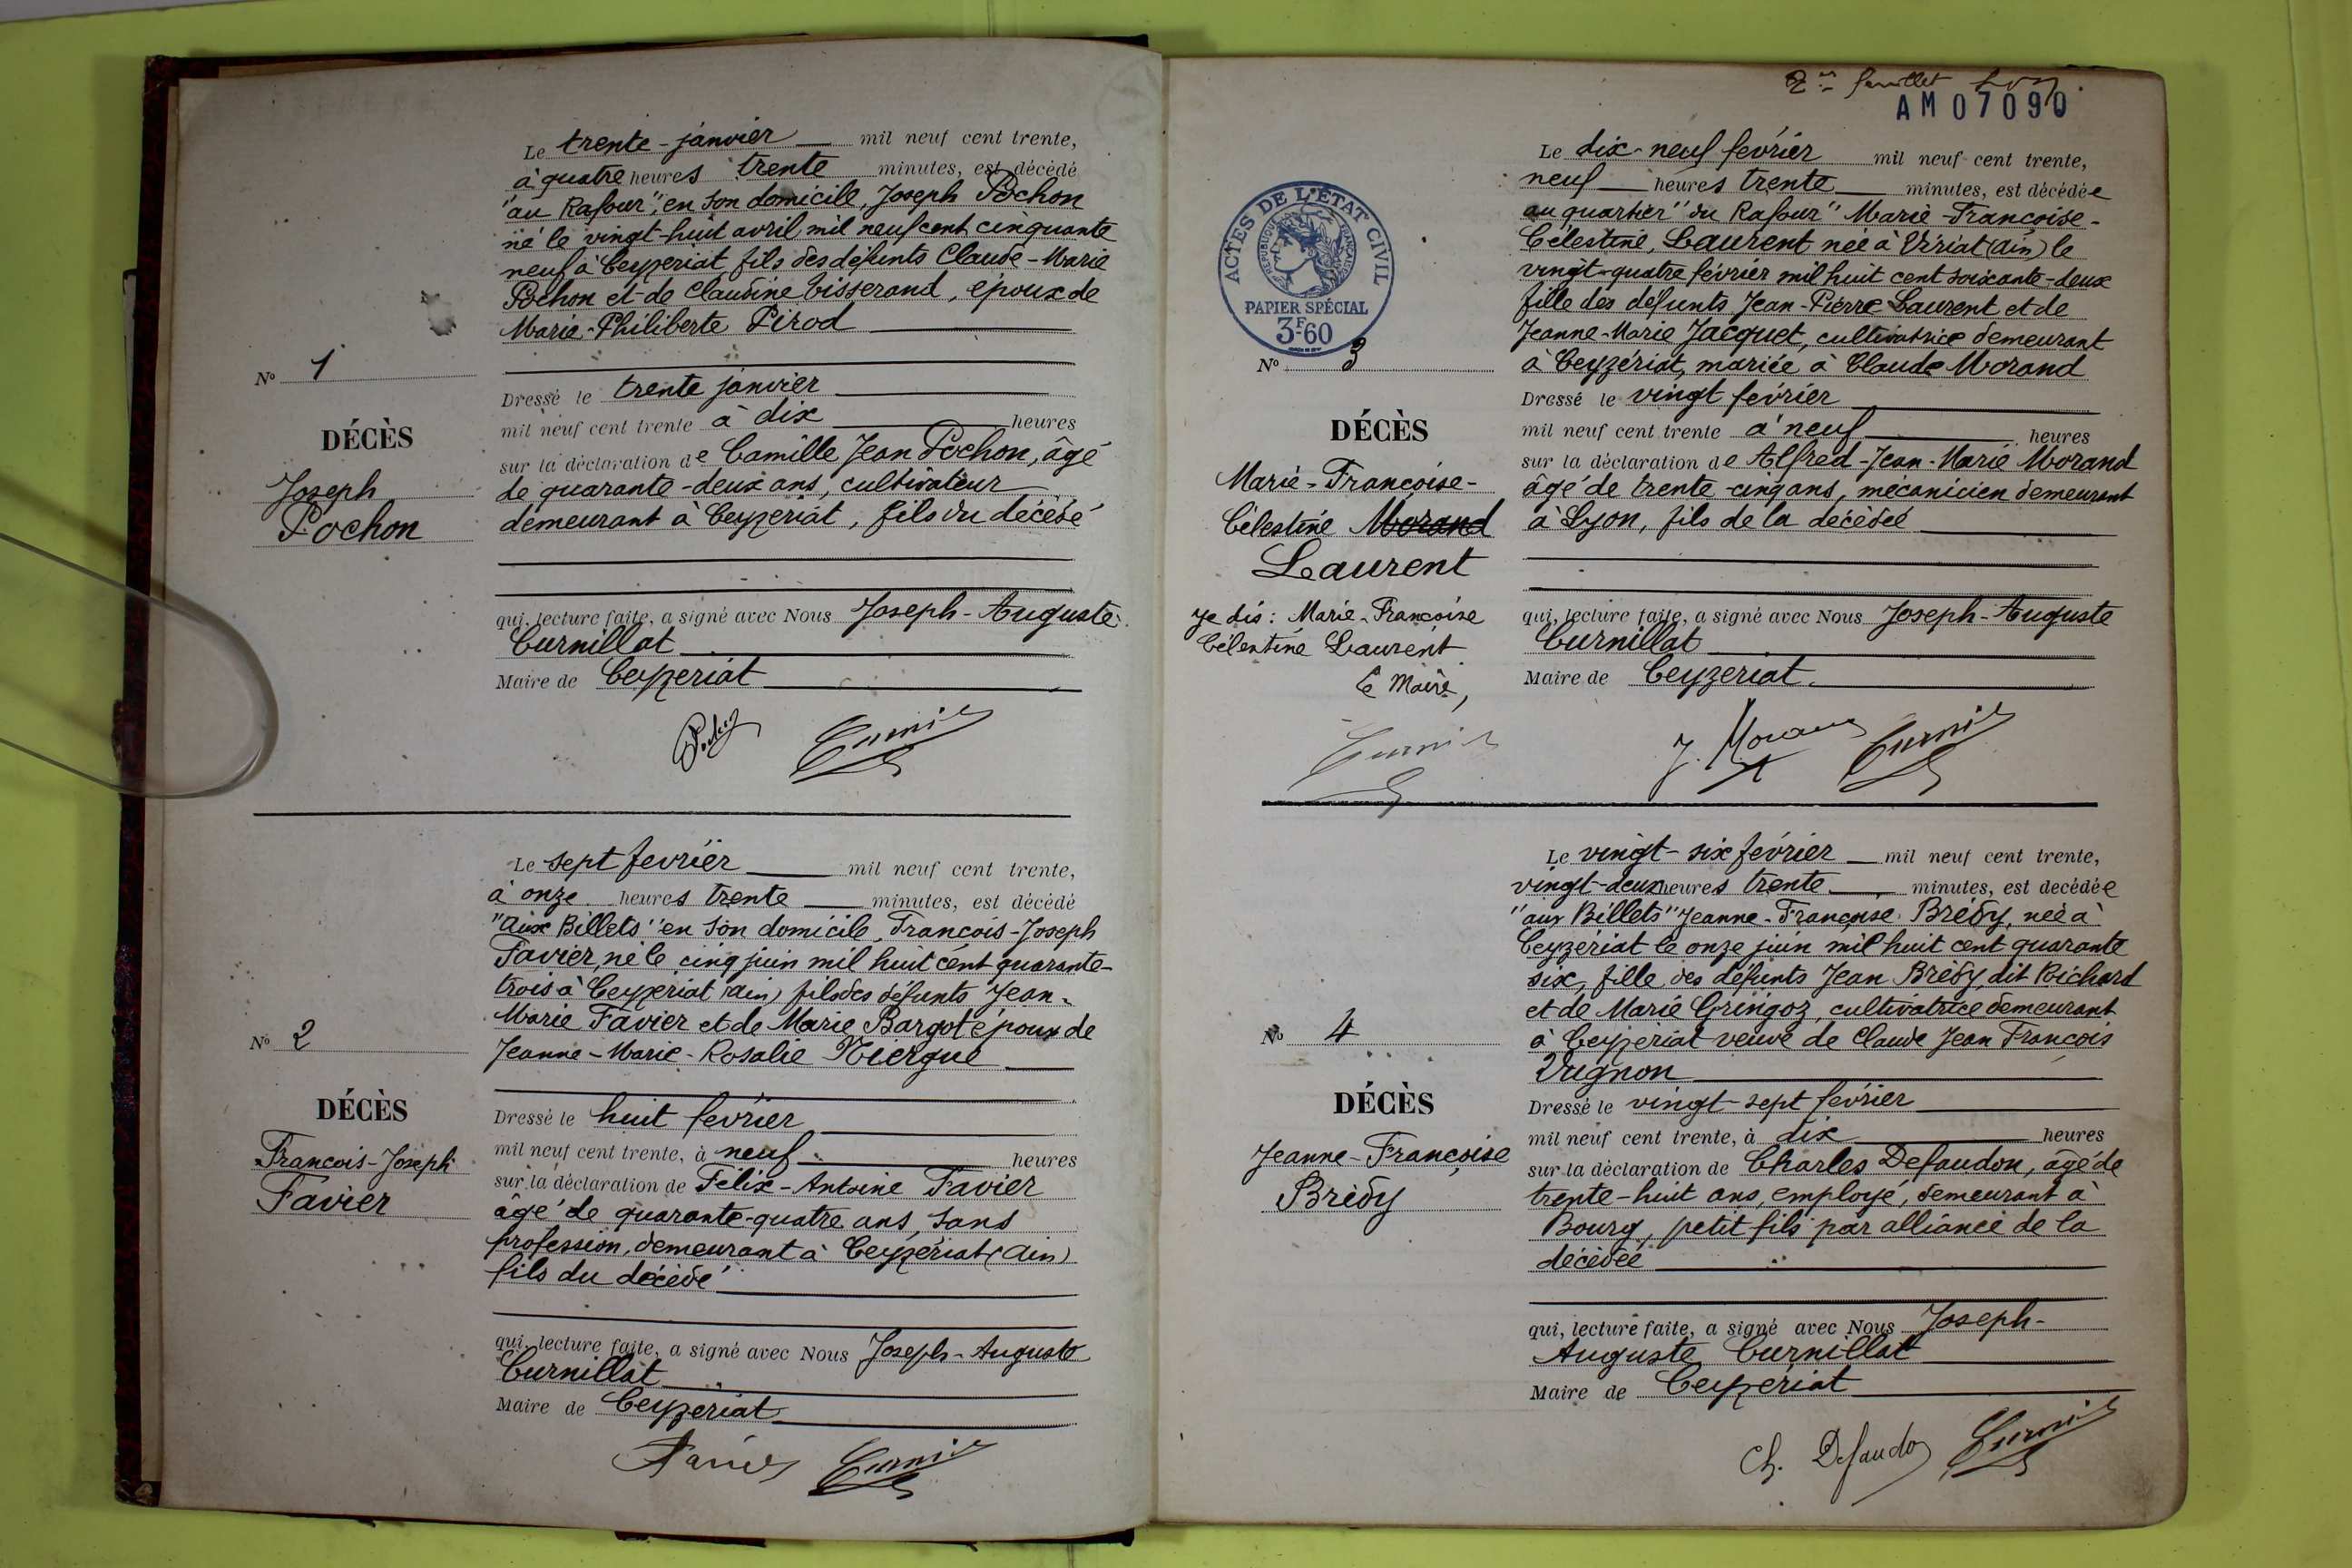 Le trente-janvier mil neuf cent trente,
à quatre heures trente minutes, est décédé
"au Rafour", en son domicile, Joseph Pochon
né le vingt-huit avril mil neuf cent cinquante
neuf à Ceyzeriat fils des défunts Claude-Marie
Pochon et de Claudine Tisserand, époux de
Marie-Philiberte Pirod
No 1
DÉCÈS
Joseph
Pochon
Dressé le trente janvier
mil neuf cent trente à dix heures
sur la déclaration de Camille Jean Pochon, âgé
de quarante-deux ans, cultivateur
demeurant à Ceyzeriat, fils du décédé
qui, lecture faite, a signé avec Nous Joseph-Auguste
Curnillat
Maire de Ceyzeriat
Le sept fevrier mil neuf cent trente,
à onze heures trente minutes, est décédé
"aux Billets" en son domicile, Francois-Joseph
Favier, né le cinq juin mil huit cent quarante-
trois à Ceyzeriat (ain) fils des défunts Jean-
Marie Favier et de Marie Bargot époux de
Jeanne-Marie-Rosalie Niergue
No 2
DÉCÈS
Francois-Joseph
Favier
Dressé le huit fevrier
mil neuf cent trente, à neuf heures
sur la déclaration de Félix-Antoine Favier
âgé de quarante-quatre ans, sans
profession, demeurant à Ceyzériat (Ain)
fils du décédé
qui, lecture faite, a signé avec Nous Joseph-Auguste
Curnillat
Maire de Ceyzeriat
2me feuillet
AM07090
ACTES DE L'ÉTAT CIVIL
REPUBLIQUE FRANÇAISE
PAPIER SPÉCIAL
3F.60
Le dix-neuf février mil neuf cent trente,
neuf heures trente minutes, est décédée
au quartier "du Rafour" Marie-Françoise-
Célestine, Laurent née à Viriat (ain) le
vingt-quatre février mil huit cent soixante-deux
fille des défunts Jean-Pierre Laurent et de
Jeanne-Marie Jacquet, cultivatrice demeurant
à Ceyzériat, mariée à Claude Morand
No 3
DÉCÈS
Marie-Françoise-
Célestine Morand
Laurent
Je dis: Marie-Francoise
Célestine Laurent
Le Maire,
Dressé le vingt fevrier
mil neuf cent trente à neuf heures
sur la déclaration de Alfred-Jean-Marie Morand
âgé de trente-cinq ans, mécanicien demeurant
à Lyon, fils de la décédée
qui, lecture faite, a signé avec Nous Joseph-Auguste
Curnillat
Maire de Ceyzeriat.
J. Morand
Le vingt-six février mil neuf cent trente,
vingt-deux heures trente minutes, est decédée
"aux Billets" Jeanne-Françoise Brédy, née à
Ceyzériat le onze juin mil huit cent quarante
six, fille des défunts Jean Brédy, dit Richard
et de Marie Gringoz, cultivatrice demeurant
à Ceyzeriat veuve de Claude Jean François
Vugnon
No 4
DÉCÈS
Jeanne-Françoise
Brédy
Dressé le vingt-sept février
mil neuf cent trente, à dix heures
sur la déclaration de Charles Defaudon, âgé de
trente-huit ans, employé, demeurant à
Bourg, petit fils par alliance de la
décédée
qui, lecture faite, a signé avec Nous Joseph-
Auguste Curnillat
Maire de Ceyzériat
Ch. Defaudon